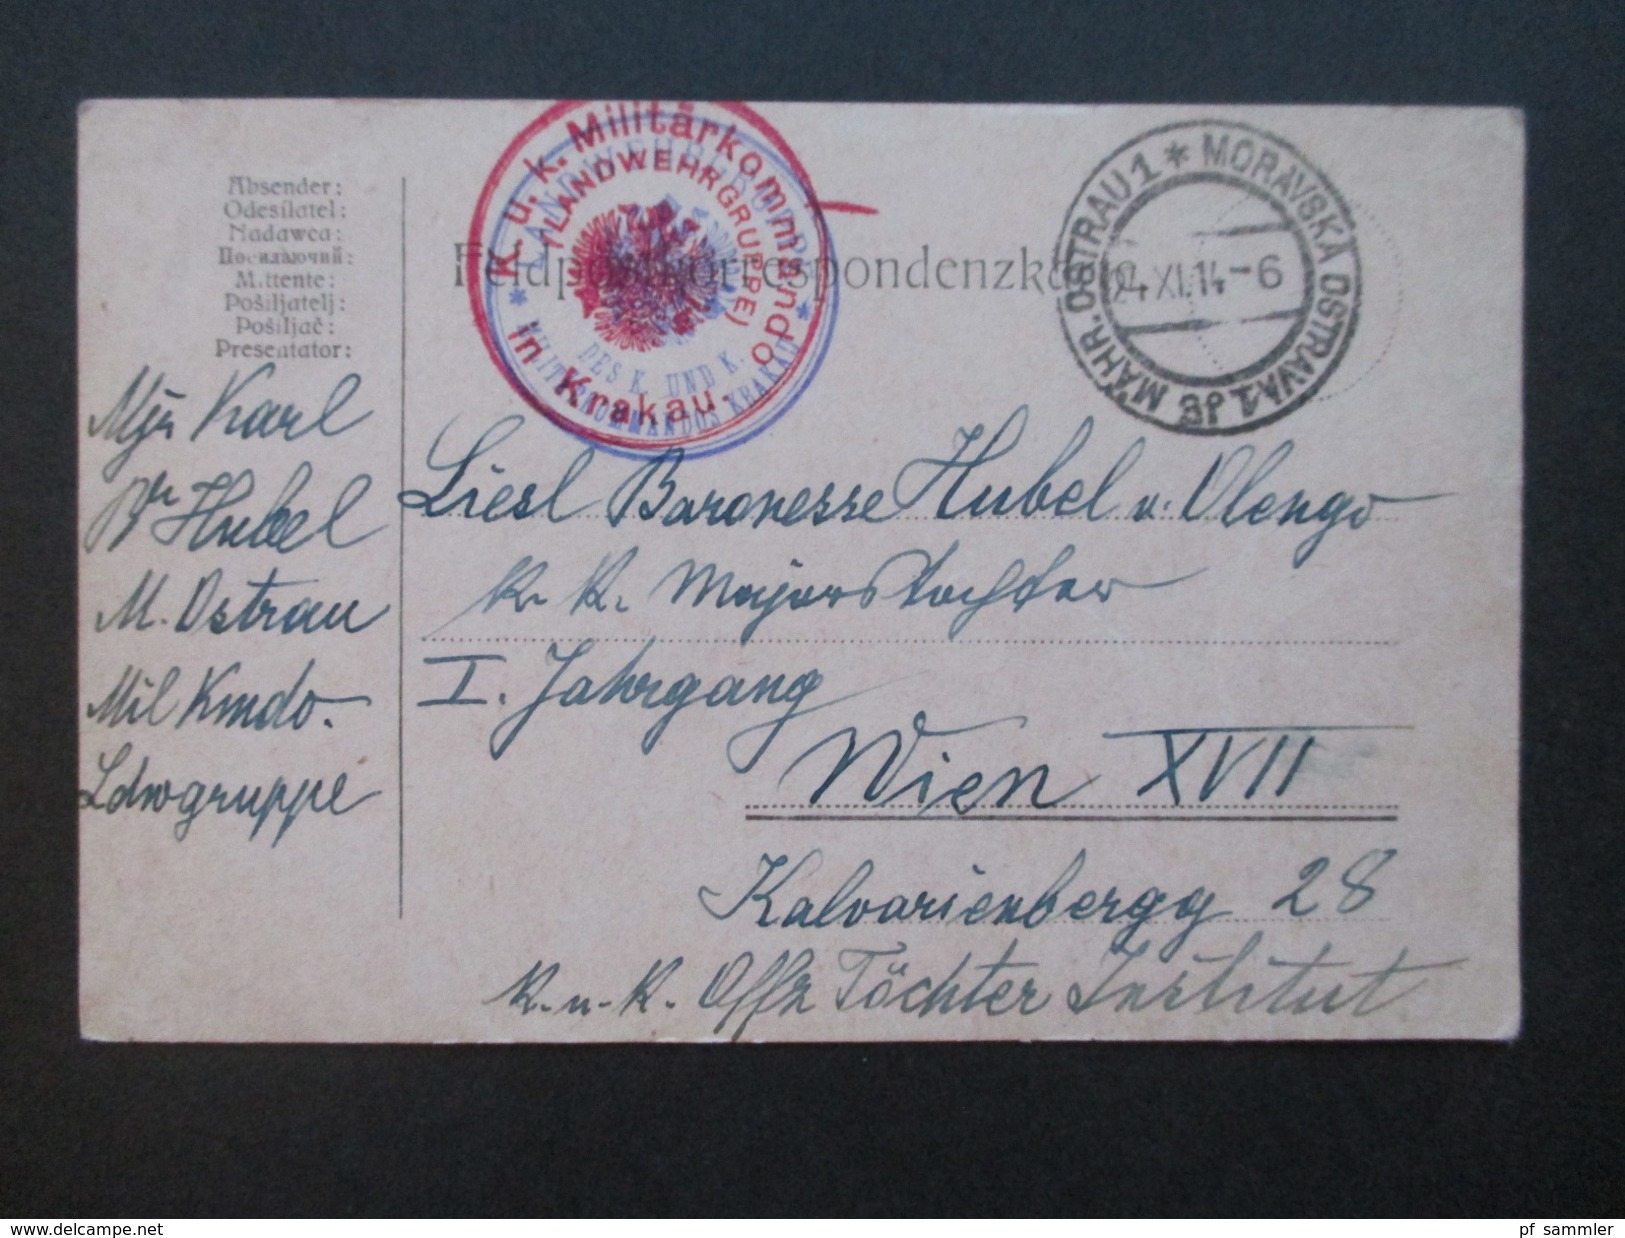 Absender:
Odesílatel:
Nadawca:
Посилаючий:
Mittente:
Pošiljatelj:
Pošiljač:
Presentator:
K. u. k. Militärkommando
(LANDWEHRGRUPPE)
in Krakau.
LANDWEHRGRUPPE
DES K. UND K.
MILITÄRKOMMANDOS KRAKAU
Feldpostkorrespondenzkarte
MÄHR. OSTRAU 1 * MORAVSKÁ OSTRAVA 1
24 XI 14-6
Mjr Karl
Br Hubel
M. Ostrau
Mil Kmdo.
Ldwgruppe
Liesl Baronesse Hubel v. Olengo
k. k. Majorstochter
I. Jahrgang
Wien XVII
Kalvarienbergg 28
k. u. k. Offz Töchter Institut
www.delcampe.net
pf_sammler